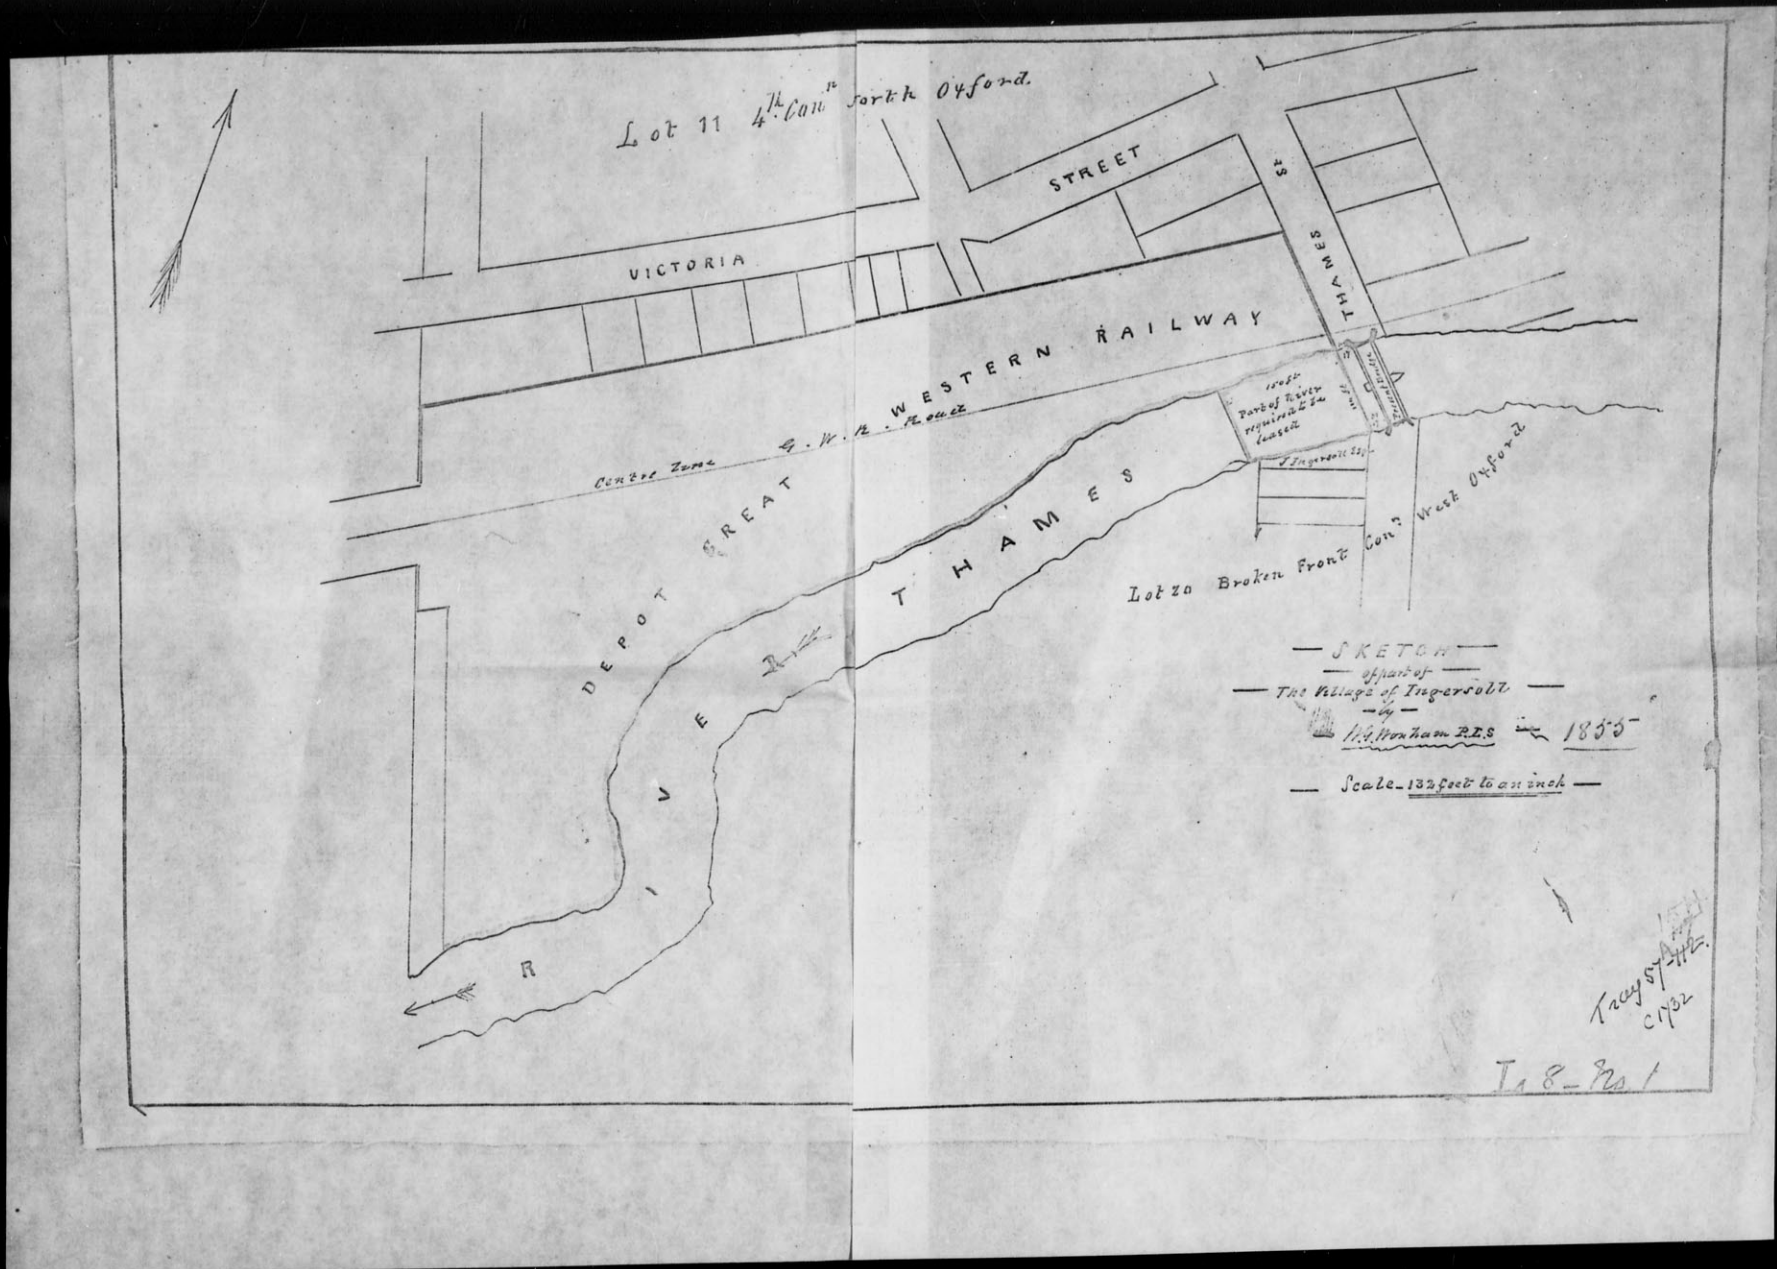 Lot 11 4th Conn North Oxford.
VICTORIA STREET
THAMES St
DEPOT GREAT WESTERN RAILWAY
Centre Line G. W. R. Road
150 ft
Part of River
required to be
leased
Present Bridge
J Ingersoll Esq
RIVER THAMES
Lot 20 Broken Front Conn West Oxford
SKETCH
of part of
The Village of Ingersoll
by
W.G. Wonham P.L.S 1855
Scale 132 feet to an inch
Tray 57
C 1732
In 8 - No 1